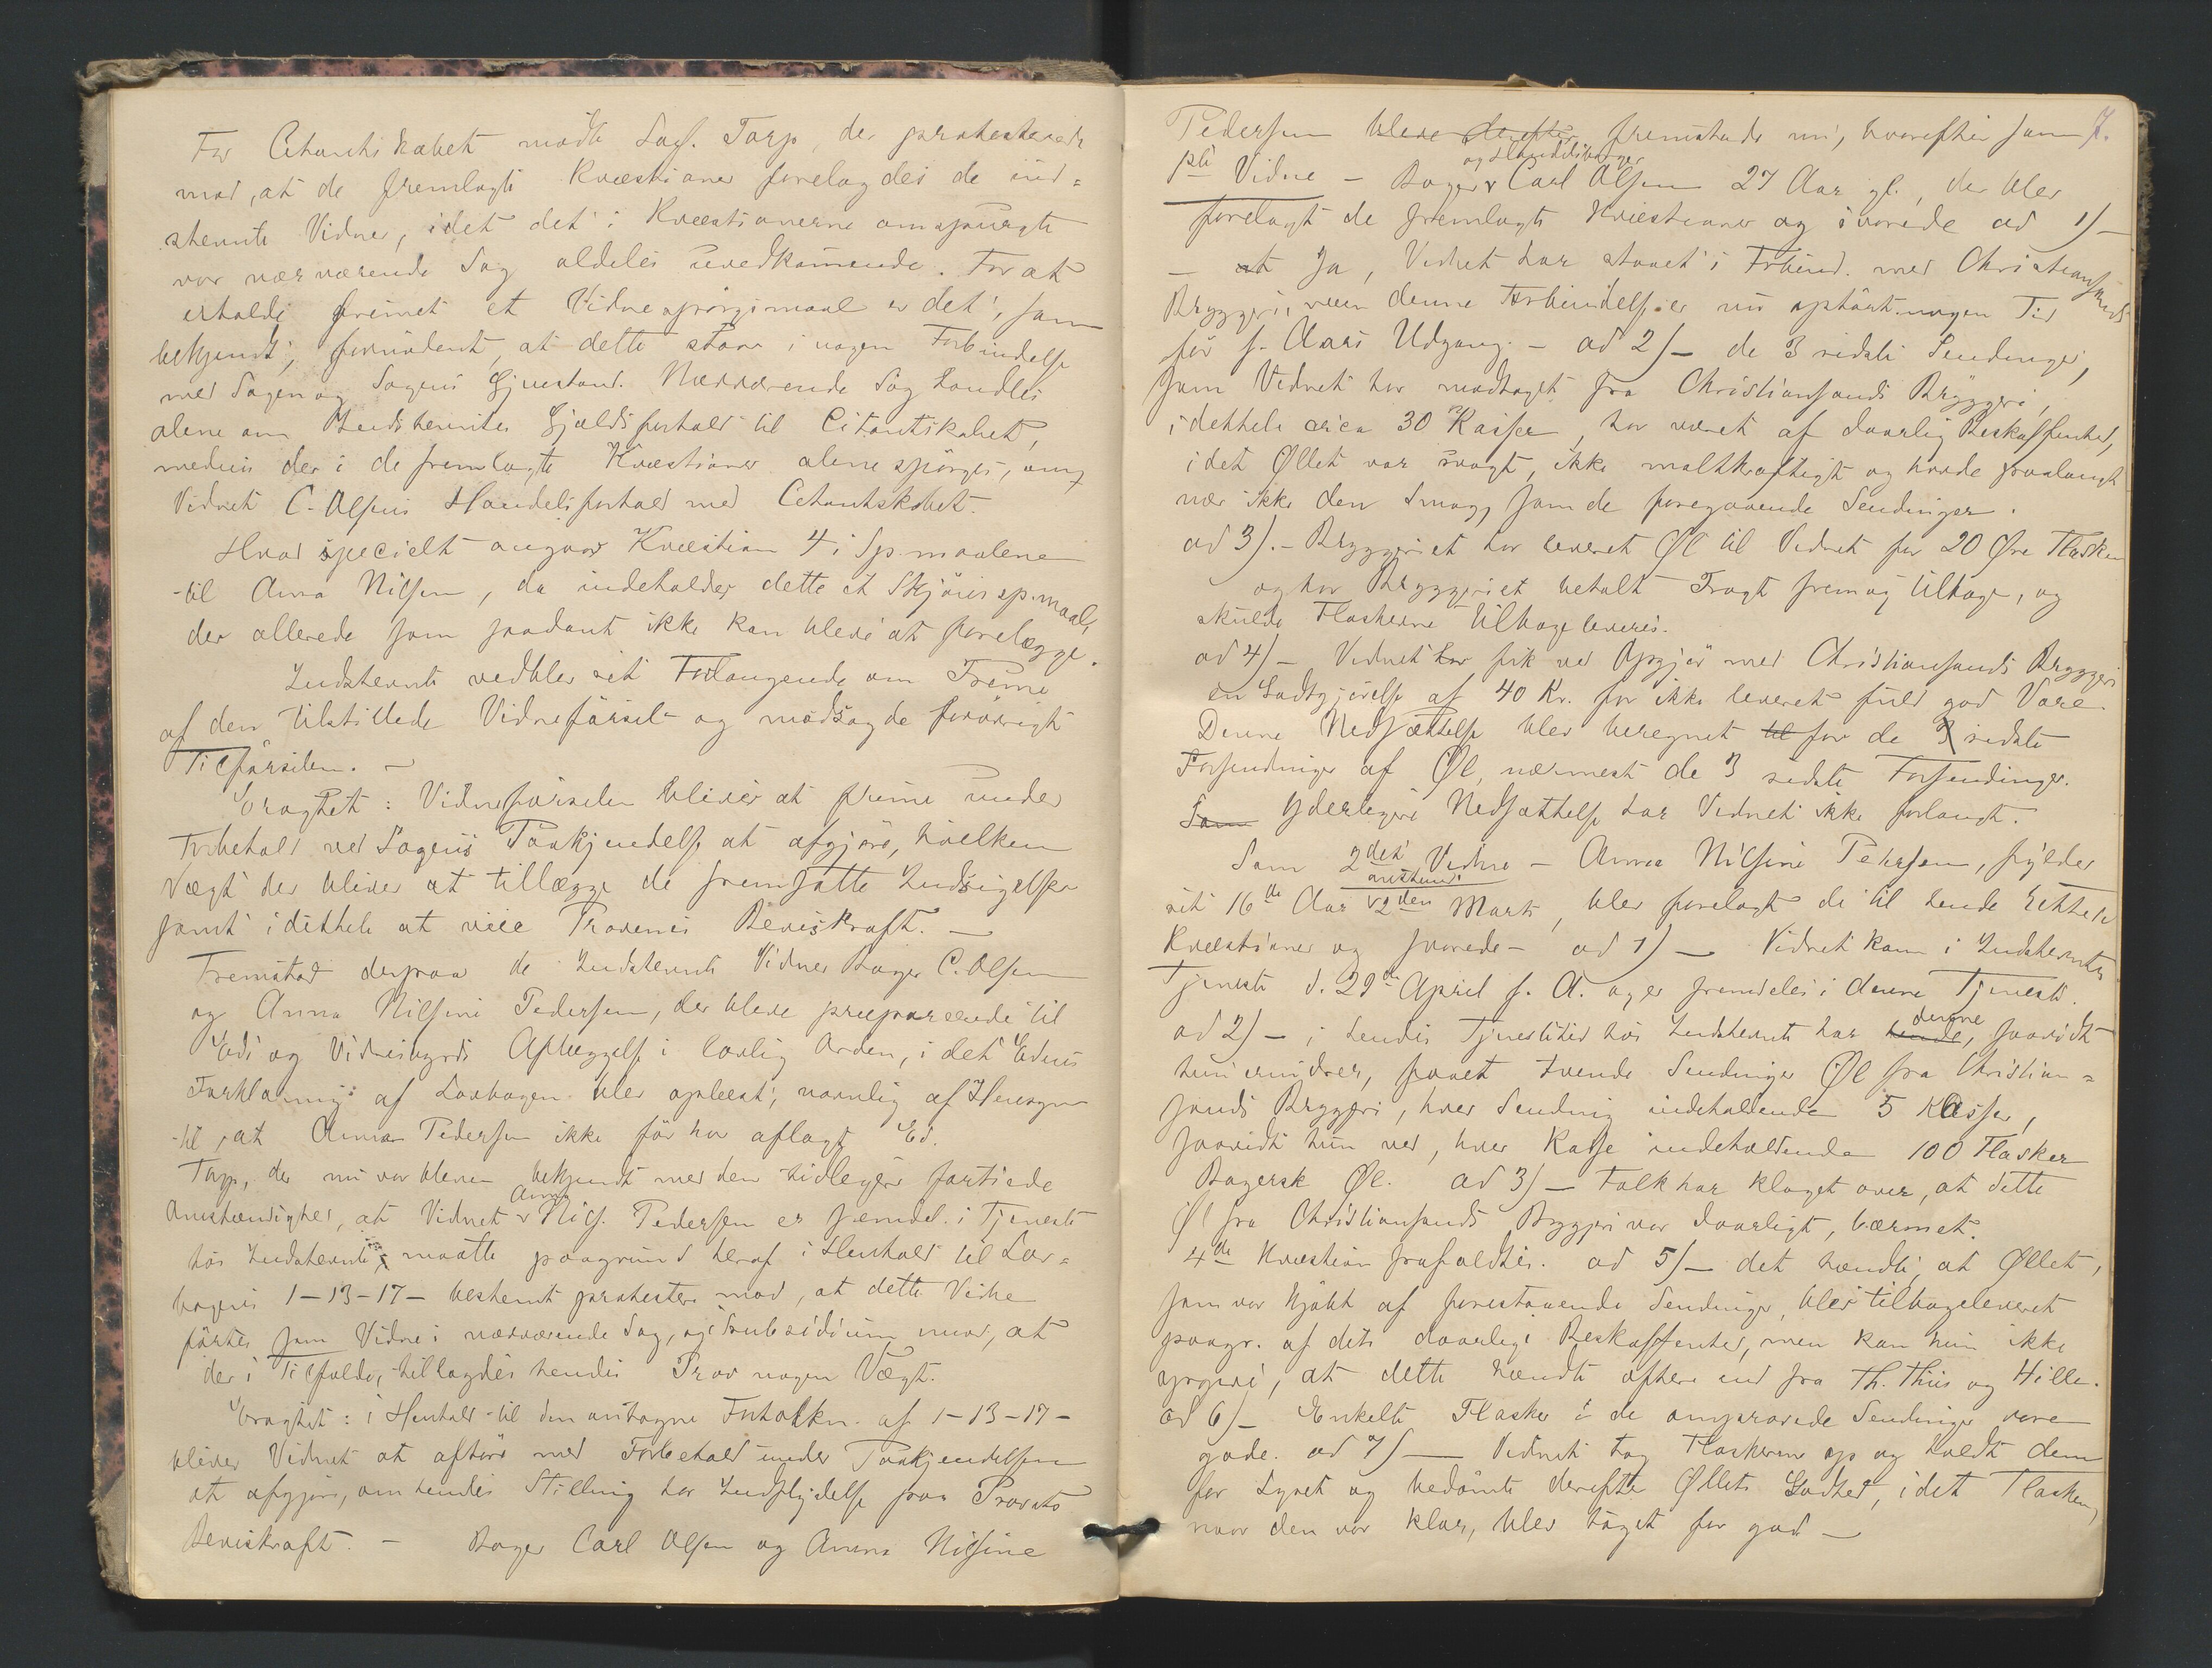 For Citantskabet mødte Sagf. Tarp, der protesterede
mod, at de fremlagte Kvæstioner forelagdes de ind-
stevnte Vidner, idet det i Kvæstionerne omspurgte
var nærværende Sag aldeles uvedkommende. For at
erholde fremmet et Vidnespørgsmaal er det, som
bekjendt, fornødent, at dette staar i nogen Forbindelse
med Sagen og Sagens Gjenstand. Nærværende Sag handles
alene om Indstevntes Gjældsforhold til Citantskabet,
medens der i de fremlagte Kvæstioner alene spørges, om
Vidnet C. Olsens Handelsforhold med Citantskabet.
Hvad specielt angaar Kvæstion 4 i Sp.maalene
til Anna Nilsen, da indeholder dette et Skjønssp.maal,
der allerede som saadant ikke kan blive at forelægge.
Indstevnte vedblev sit Forlangende om Fremme
af den tilstillede Vidneførsel og modsagde forøvrigt
Tilførselen. —
Eragtet: Vidneførselen bliver at fremme under
Forbehold ved Sagens Paakjendelse at afgjøre, hvilken
Vægt der bliver at tillægge de fremsatte Indsigelser
samt i det hele at veie Provenes Beviskraft. —
Fremstod derpaa de indstevnte Vidner Bager C. Olsen
og Anna Nilsine Pedersen, der bleve præparerede til
Eds og Vidnesbyrds Aflæggelse i lovlig Orden, i det Edens
Forklaring af Lovbogen blev oplæst, navnlig af Hensyn
til, at Anna Pedersen ikke før har aflagt Ed.
Tarp, der nu var bleven bekjendt med den tidligere fortiede
Omstændighed, at Vidnet Anna Nils. Pedersen er fremdel. i Tjeneste
hos Indstevnte, maatte paagrund heraf i Henhold til Lov-
bogens 1–13–17 – bestemt protestere mod, at dette Vidne
førtes som Vidne i nærværende Sag, og i Subsidium mod, at
der i Tilfælde, tillagdes hendes Prov nogen Vægt.
Eragtet: i Henhold til den antagne Fortolkn. af 1–13–17 –
bliver Vidnet at afhøre med Forbehold under Paakjendelsen
at afgjøre, om hendes Stilling har Indflydelse paa Provets
Beviskraft. — Bager Carl Olsen og Anna Nilsine
7.
Pedersen bleve derefter fremstede nu, hvorefter som
1ste Vidne – Bager og Handelsborger Carl Olsen 27 Aar gl., der blev
forelagt de fremlagte Kvæstioner og svarede ad 1) –
– at Ja, Vidnet har staaet i Forbind. med Christiansands
Bryggeri, men denne Forbindelse er nu ophørt nogen Tid
før f. Aars Udgang. – ad 2) – de 3 sidste Sendinger,
som Vidnet har modtaget fra Christiansands Bryggeri,
i dethele circa 30 Kasser, har været af daarlig Beskaffenhed,
idet Øllet var svagt, ikke maltkraftigt og havde saalangt
nær ikke den Smag, som de foregaaende Sendinger.
ad 3). – Bryggeriet har leveret Øl til Vidnet for 20 Øre Flasken
og har Bryggeriet betalt Fragt frem og tilbage, og
skulde Flaskerne tilbageleveres.
ad 4) – Vidnet har fik ved Opgjør med Christiansands Bryggeri
en Godtgjørelse af 40 Kr. for ikke leveret fuld god Vare.
Denne Nedsættelse blev beregnet til for de 3 sidste
Forsendinger af Øl, nærmest de 3 sidste Forsendinger.
Som Yderligere Nedsættelse har Vidnet ikke forlangt.
Som 2det Vidne – Anna Nilsine Pedersen, fylder
sit 16de Aar anstund. 2den Marts, blev forelagt de til hende rettede
Kvæstioner og svarede – ad 1) – Vidnet kom i Indstevntes
Tjeneste d. 29de April f. A. og er fremdeles i denne Tjeneste.
ad 2) – i hendes Tjenestetid hos Indstevnte har hende, denne saavidt
hun erindrer, faaet tvende Sendinger Øl fra Christian-
sands Bryggeri, hver Sending indeholdende 5 Kasser,
saavidt hun ved, hver Kasse indeholdende 100 Flasker
Bagersk Øl. ad 3) – Folk har klaget over, at dette
Øl fra Christiansands Bryggeri var daarligt, bærmet.
4de Kvæstion frafaldtes. ad 5) – det hændte, at Øllet,
som var kjøbt af forestaaende Sendinger, blev tilbageleveret
paagr. af dets daarlige Beskaffenhed, men kan hun ikke
opgive, at dette hændte oftere end fra Th. Thiis og Hille.
ad 6) – Enkelte Flasker i de omprovede Sendinger vare
gode. ad 7) – Vidnet tog Flaskerne op og holdt dem
for Lyset og bedømte derefter Øllets Godhed, idet Flasken,
naar den var klar, blev taget for god –